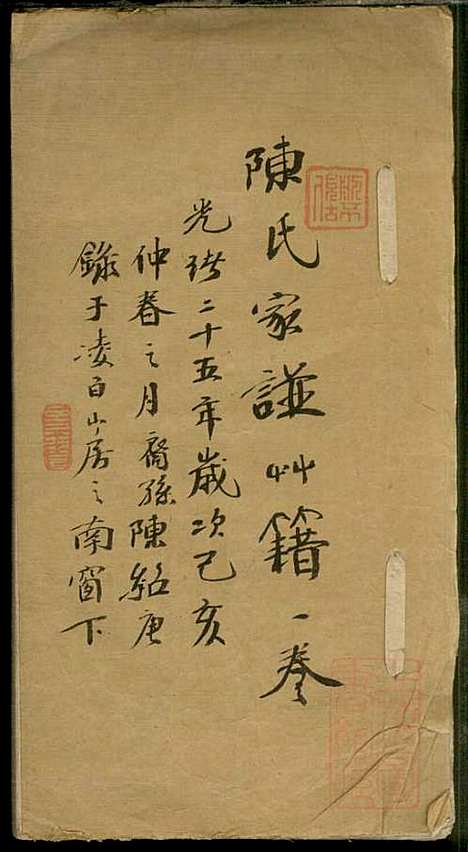 陳氏家謚艸籍一卷
光緒二十五年歲次己亥
仲春之月裔孫陳紹庚
錄于凌白山房之南窗下